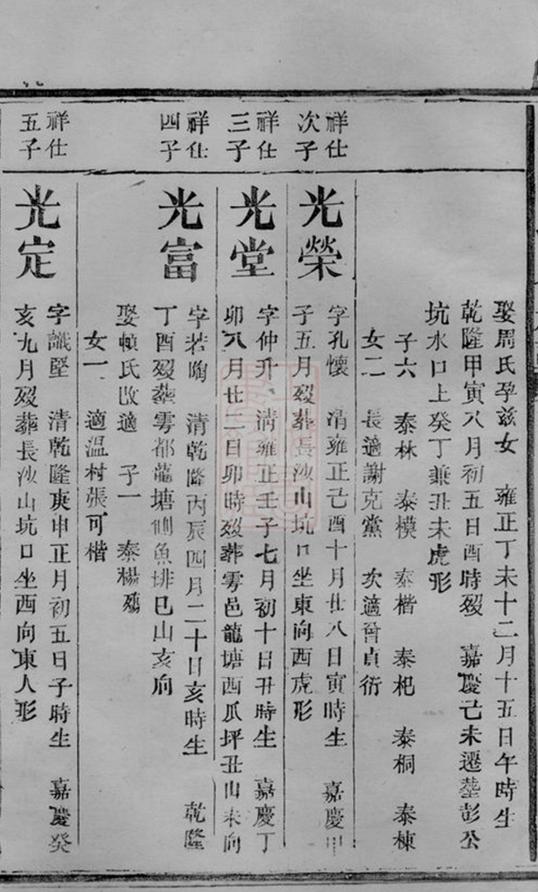 娶周氏孕茲女　雍正丁未十二月十五日午時生
乾隆甲寅八月初五日酉時歿　嘉慶己未遷塟彭公
坑水口上癸丁兼丑未虎形
子六　泰林　泰模　泰楷　泰杞　泰桐　泰棟
女二　長適謝克黨　次適曾貞衍
祥仕
次子
光榮
字孔懷　清雍正己酉十月廿八日寅時生　嘉慶甲
子五月歿葬長沙山坑口坐東向西虎形
祥仕
三子
光堂
字仲升　清雍正壬子七月初十日丑時生　嘉慶丁
卯八月廿二日卯時歿葬雩邑龍塘西瓜坪丑山未向
祥仕
四子
光富
字若陶　清乾隆丙辰四月二十日亥時生　乾隆
丁酉歿葬雩都龍塘側魚排巳山亥向
娶賴氏改適　子一　泰楊殤
女一　適温村張可楷
祥仕
五子
光定
字識堅　清乾隆庚申正月初五日子時生　嘉慶癸
亥九月歿葬長沙山坑口坐西向東人形